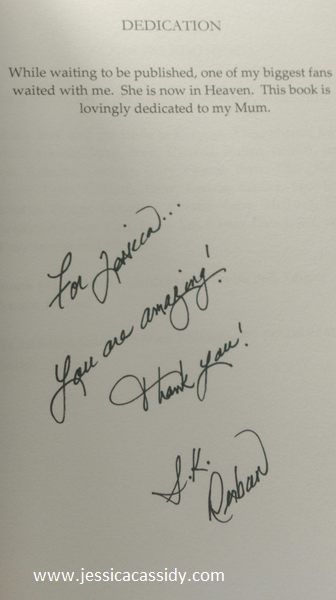 DEDICATION
While waiting to be published, one of my biggest fans
waited with me. She is now in Heaven. This book is
lovingly dedicated to my Mum.
For Jessica...
You are amazing!
Thank you!
S.K.
Derban
www.jessicacassidy.com